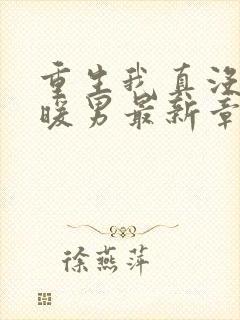 重生我真没
暖男最新章
徐燕萍